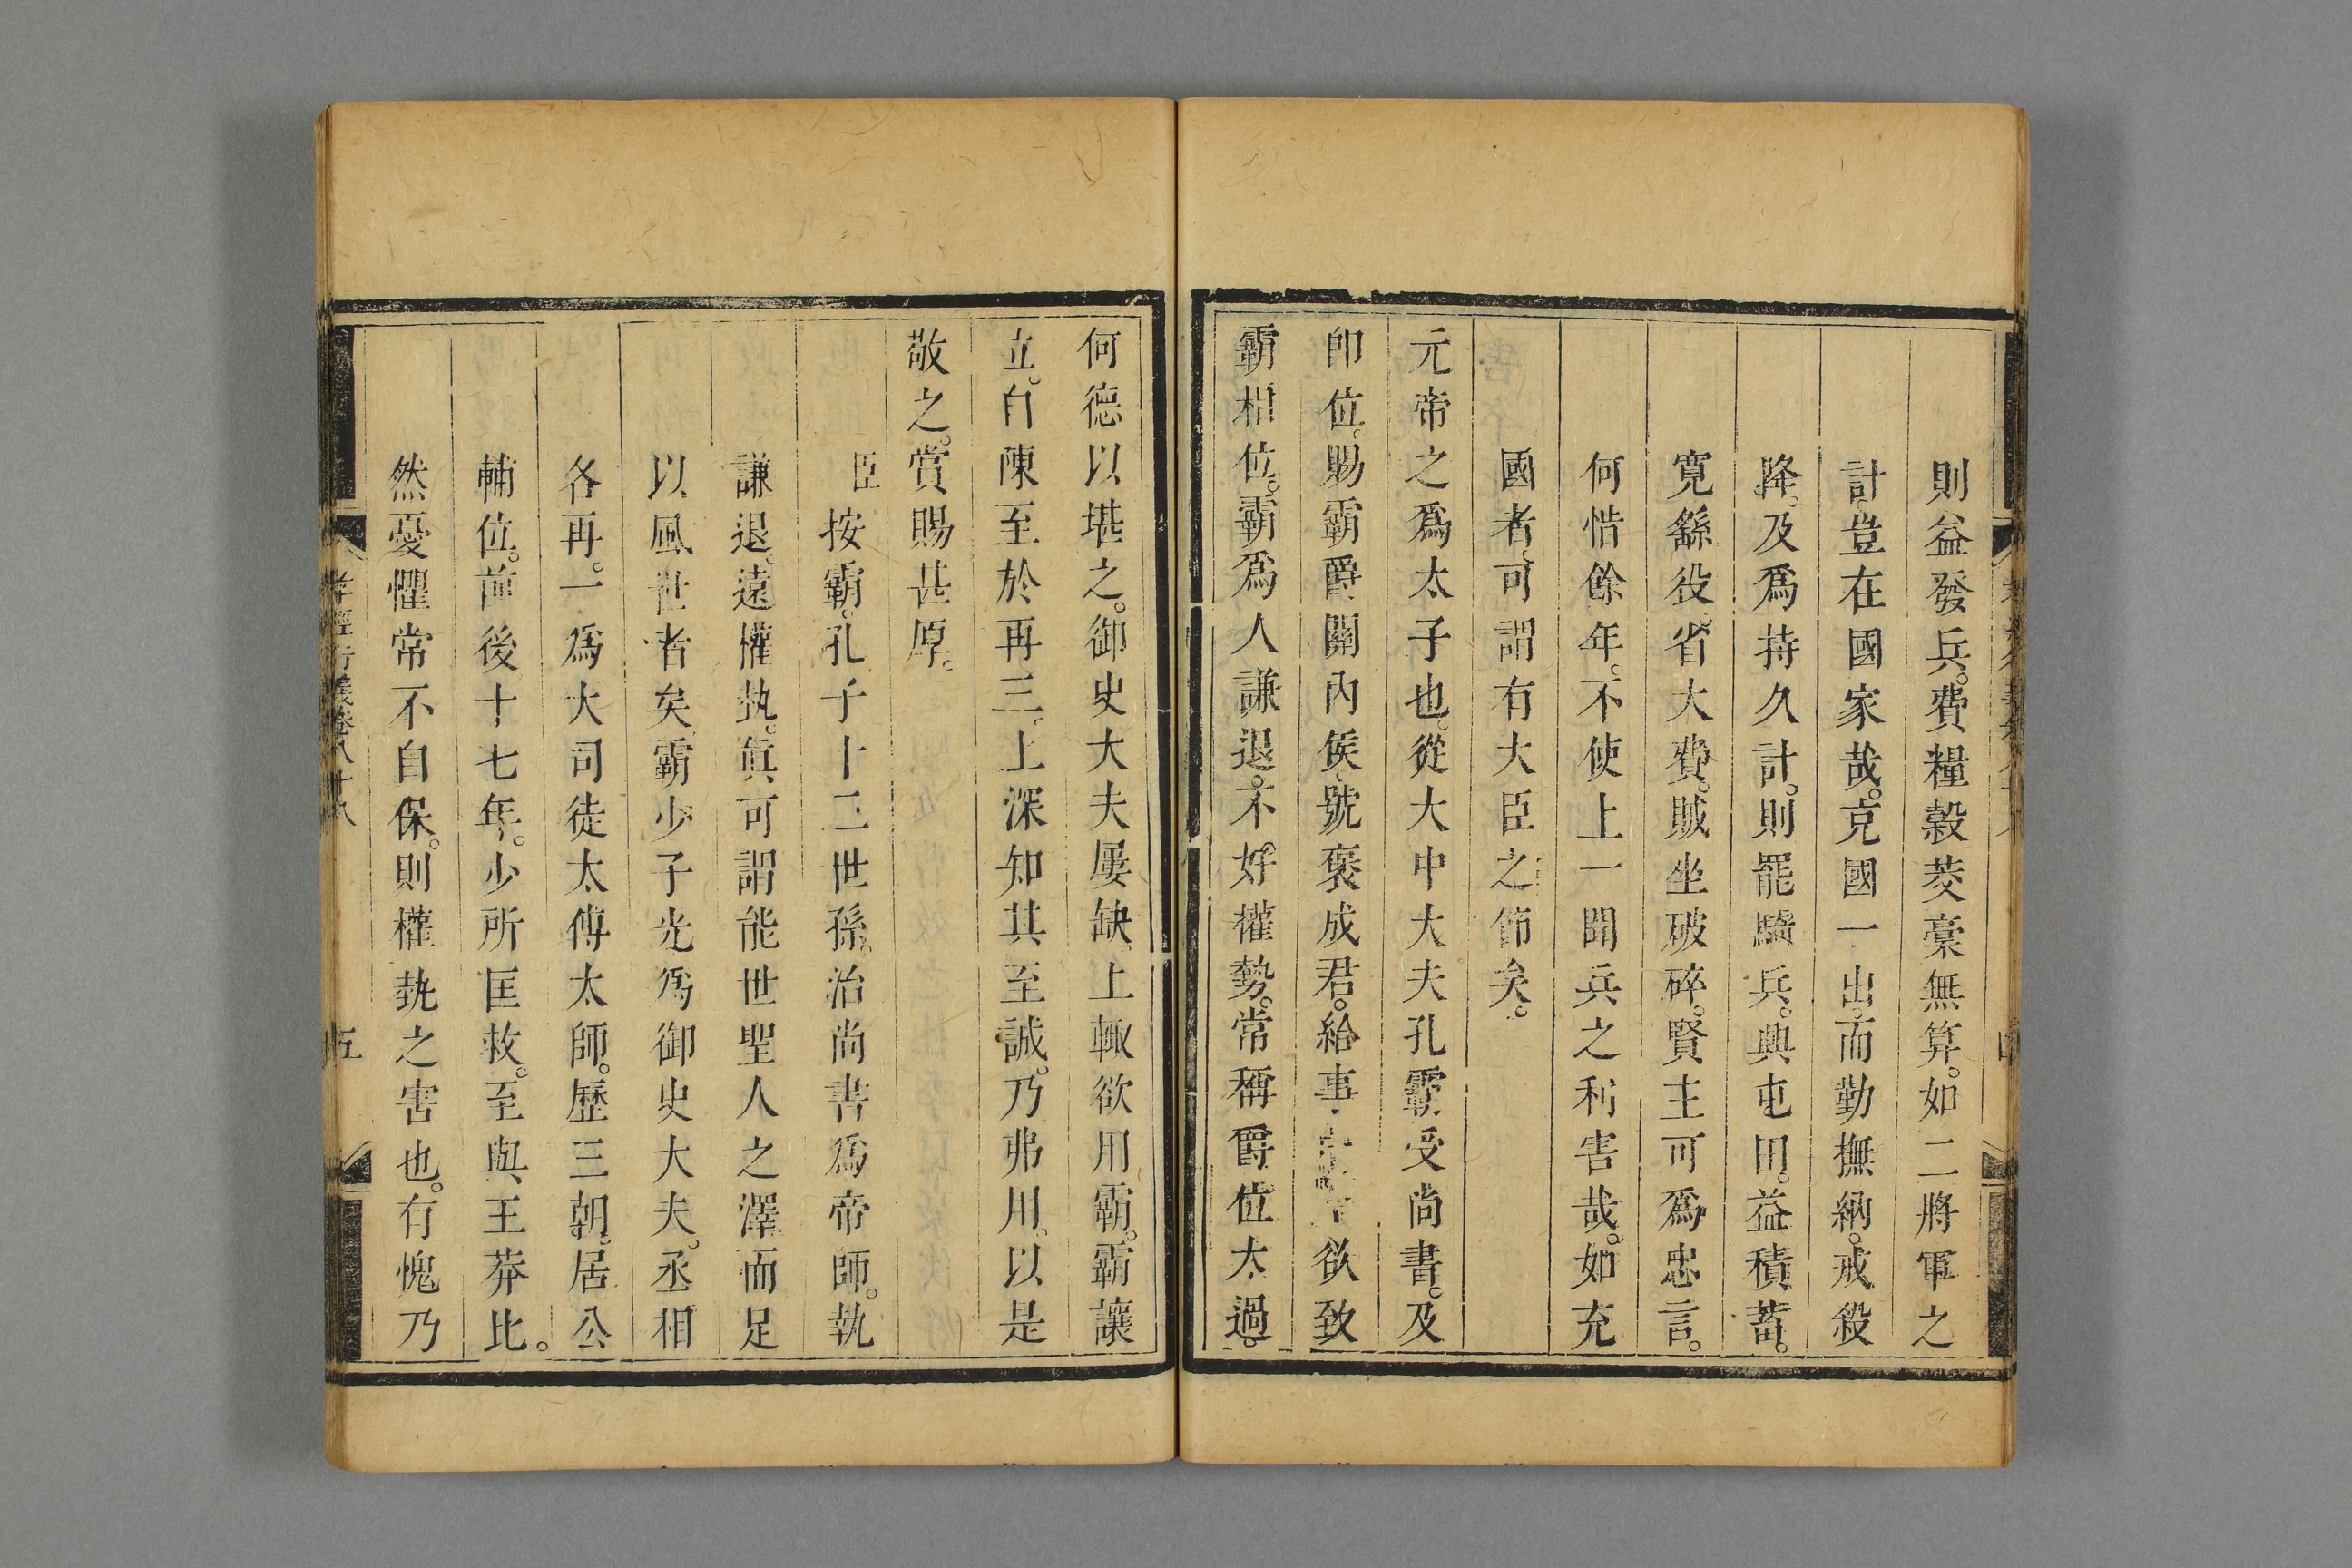 則益發兵。費糧穀茭稾無算。如二將軍之
計。豈在國家哉。克國一出。而勤撫納。戒殺
降。及爲持久計。則罷騎兵。興屯田。益積蓄。
寛繇役。省大費。賊坐破碎。賢主可爲忠言。
何惜餘年。不使上一聞兵之利害哉。如充
國者。可謂有大臣之節矣。
元帝之爲太子也。從大中大夫孔霸受尚書。及
卽位。賜霸爵關內侯。號褒成君。給事 欲致
霸相位。霸爲人謙退。不好權勢。常稱爵位太過。
何德以堪之。御史大夫屢缺。上輙欲用霸。霸讓
位。自陳至於再三。上深知其至誠。乃弗用。以是
敬之。賞賜甚厚。
臣按霸。孔子十二世孫。治尚書爲帝師。執
謙退。遠權埶。眞可謂能世聖人之澤而足
以風世者矣。霸少子光爲御史大夫。丞相
各再。一爲大司徒太傅太師。歷三朝。居公
輔位。前後十七年。少所匡救。至與王莽比。
然憂懼常不自保。則權埶之害也。有愧乃
孝經衍義卷八十八
五